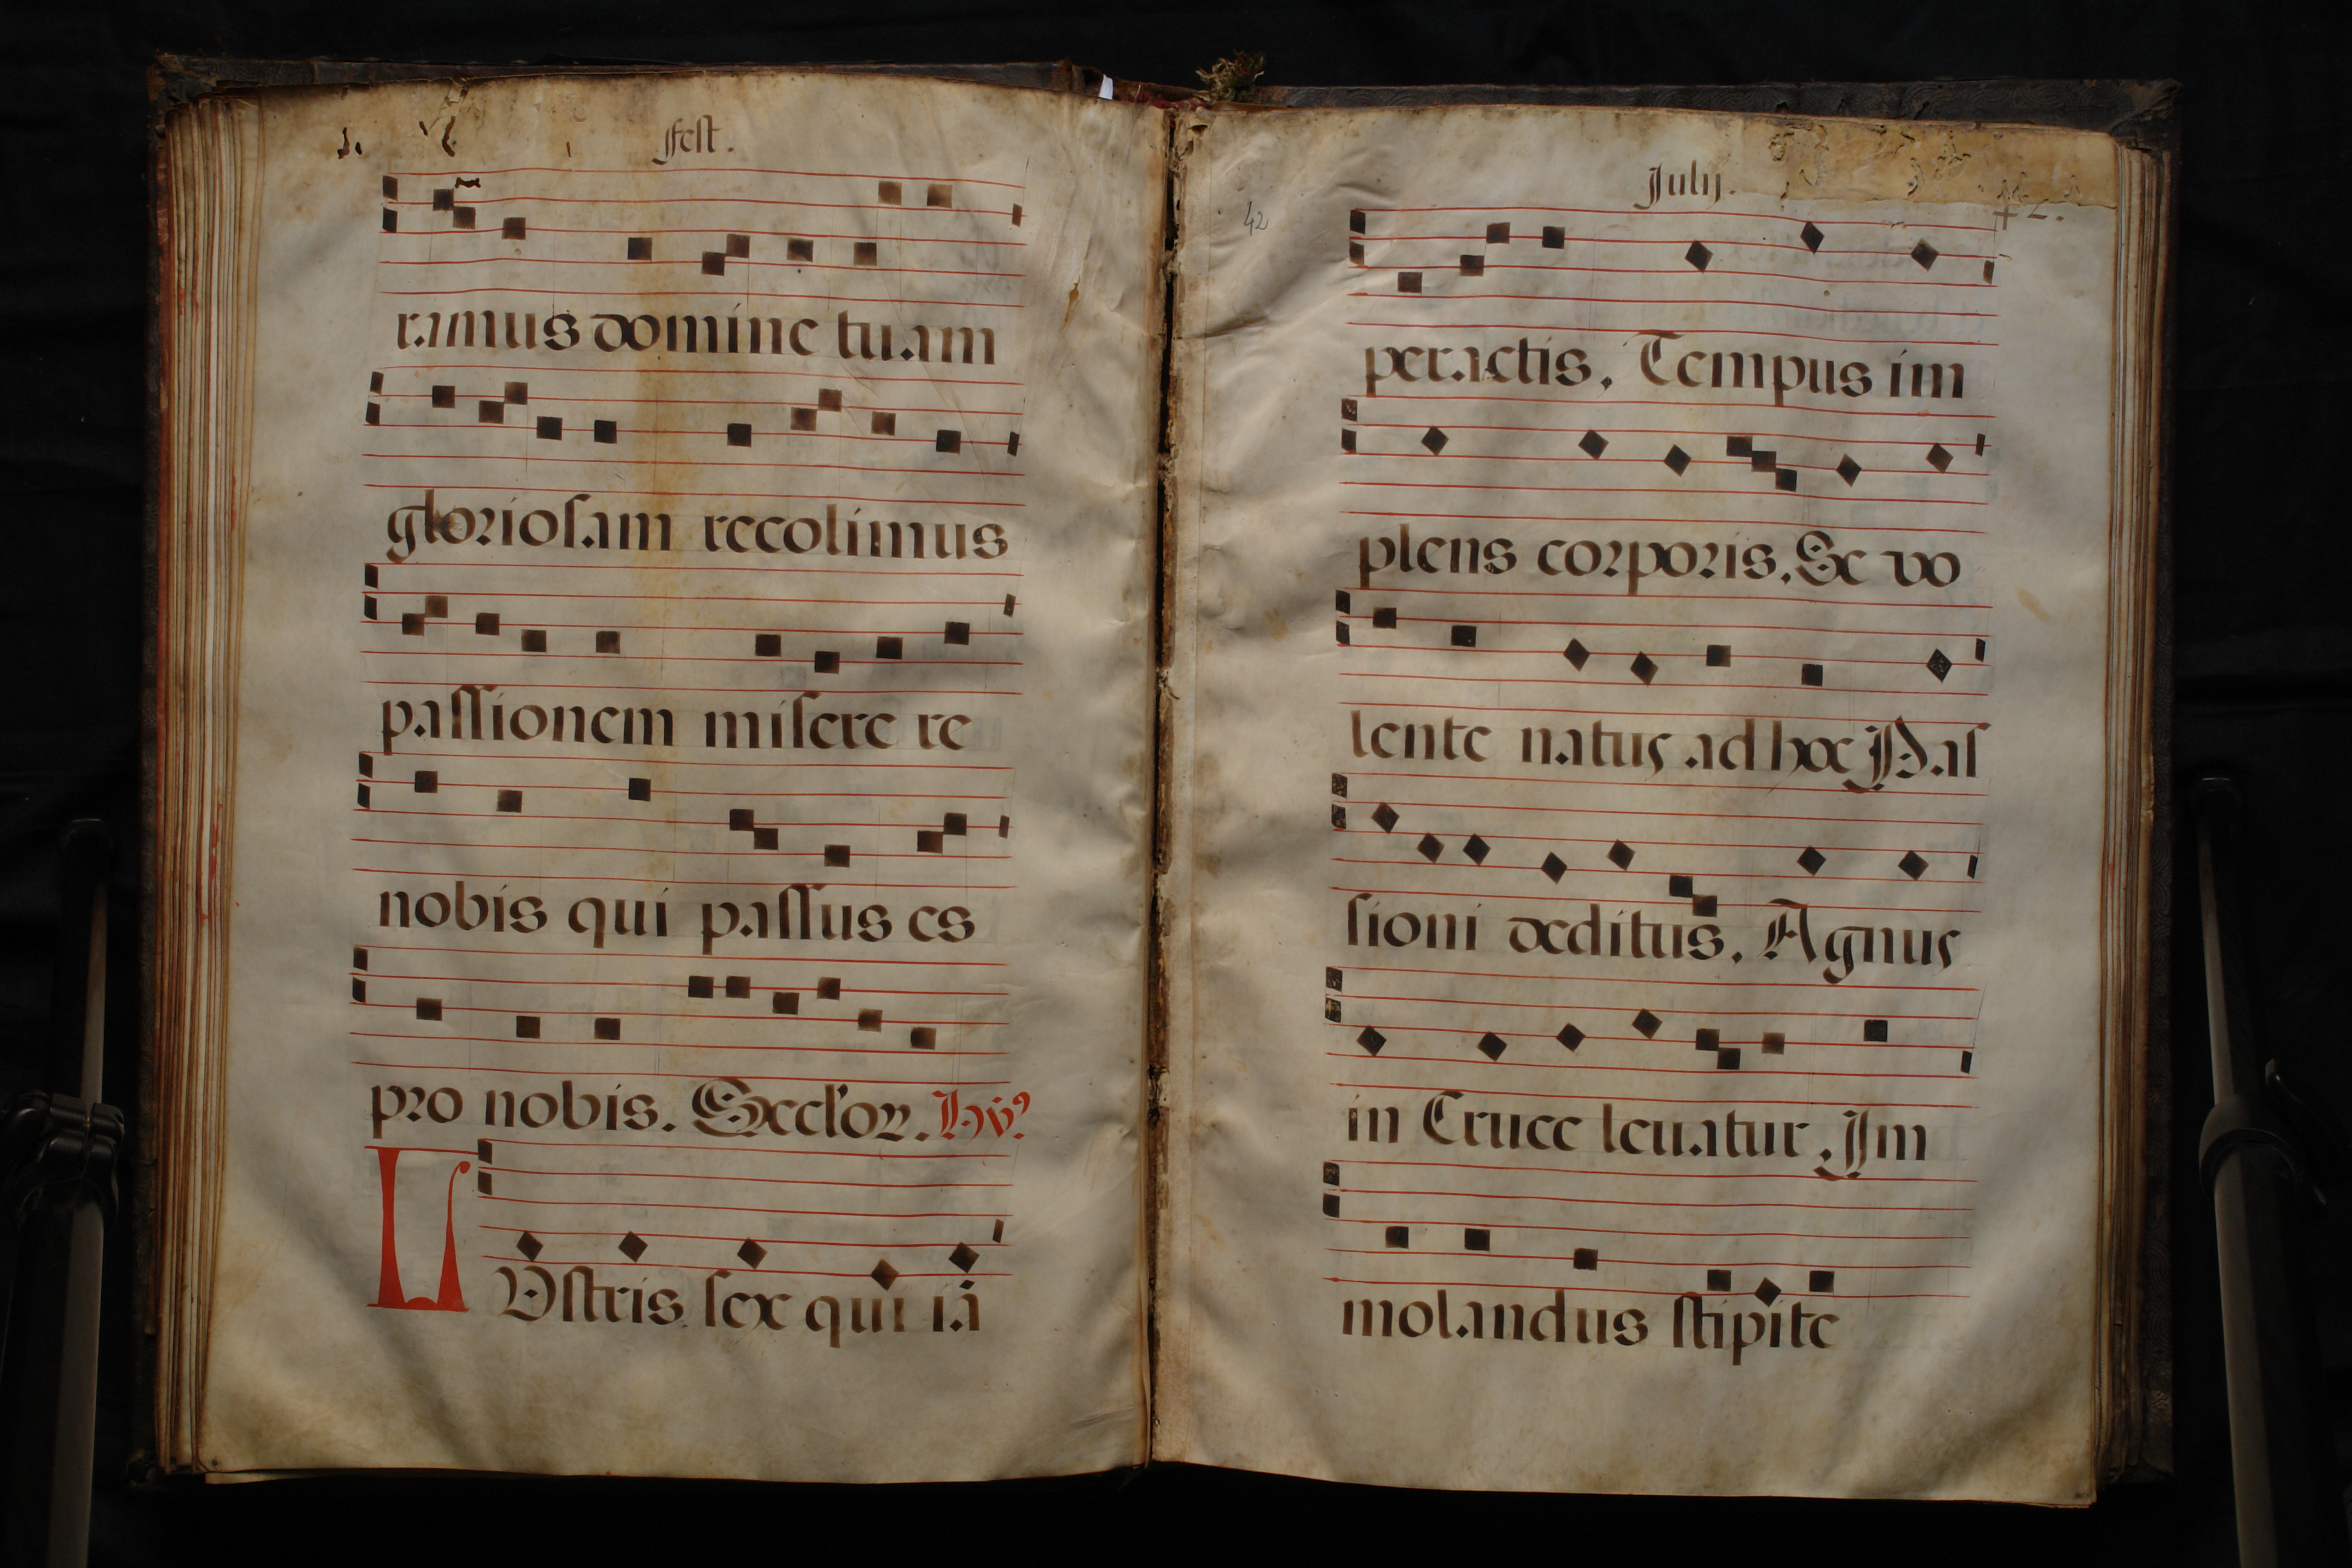 Fest.
ramus domine tuam
gloriosam recolimus
passionem misere re
nobis qui passus es
pro nobis. Hỹ⁹
L Vstris sex qui iã
July.
42
peractis, Tempus im
plens corporis, Se vo
lente natus ad hoc Pas
sioni deditus, Agnus
in Cruce leuatur, Im
molandus stipite